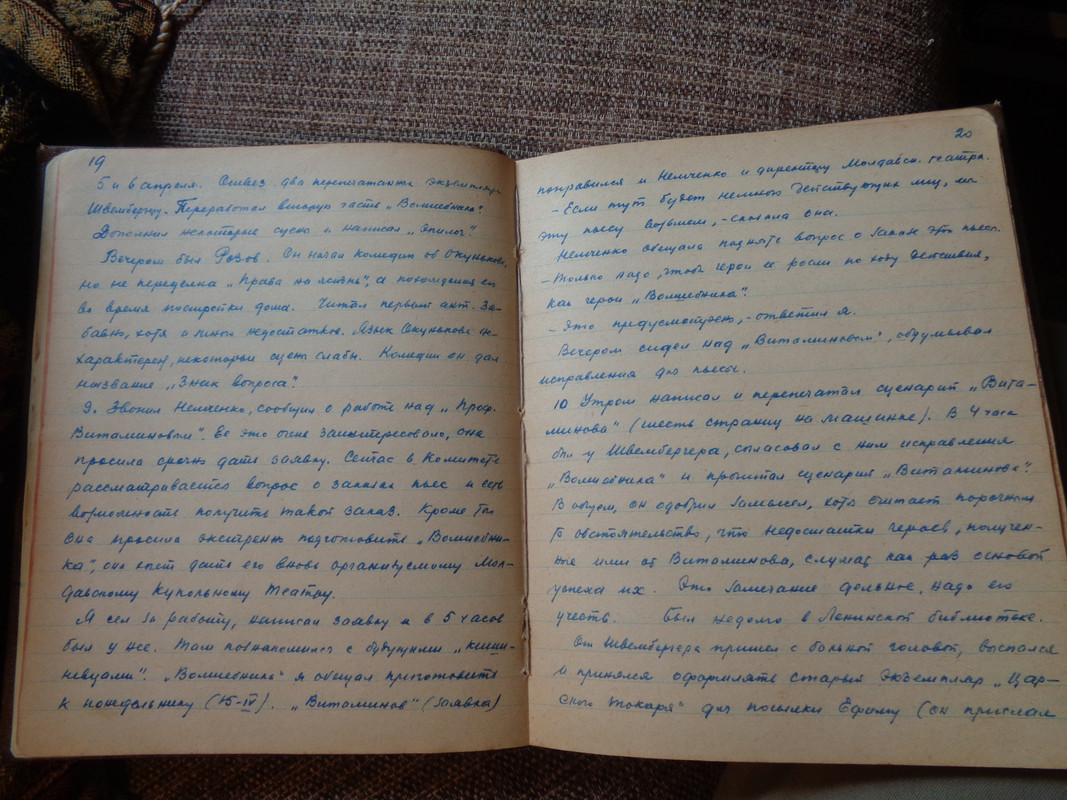 19
5 и 6 апреля. Отвез два перепечатанных экземпляра
Швембергеру. Переработал вторую часть „Волшебника".
Дополнил некоторые сцены и написал „Эпилог".
Вечером был Розов. Он начал комедию об Окунькове,
но не переделка „Права на жизнь", а похождения его
во время постройки дома. Читал первый акт. За-
бавно, хотя и много недостатков. Язык Окунькова не-
характерен, некоторые сцены слабы. Комедии он дал
название „Знак вопроса".
9. Звонил Немченко, сообщил о работе над „Проф.
Витаминовым". Ее это очень заинтересовало, она
просила срочно дать заявку. Сейчас в Комитете
рассматривается вопрос о заказах пьес и есть
возможность получить такой заказ. Кроме того
она просила экстренно подготовить „Волшебни-
ка", она хочет дать его вновь организуемому Мол-
давскому Кукольному театру.
Я сел за работу, написал заявку и в 5 часов
был у нее. Там познакомился с будущими „киши-
невцами". „Волшебника" я обещал приготовить
к понедельнику (15-IV). „Витаминов" (заявка)
20
понравился и Немченко и директору Молдавск. театра.
– Если тут будет немного действующих лиц, мы
эту пьесу возьмем, – сказала она.
Немченко обещала поднять вопрос о заказе этой пьесы.
– Только надо, чтобы герои росли по ходу действия,
как герои „Волшебника".
– Это предусмотрено, – ответил я.
Вечером сидел над „Витаминовым", обдумывал
исправления для пьесы.
10 Утром написал и перепечатал сценарий „Вита-
минова" (шесть страниц на машинке). В 4 часа
был у Швембергера, согласовал с ним исправления
„Волшебника" и прочитал сценарий „Витаминова".
В общем, он одобрил замысел, хотя считает порочным
то обстоятельство, что недостатки героев, получен-
ные ими от Витаминова, служат как раз основой
успеха их. Это замечание дельное, надо его
учесть. Был недолго в Ленинской библиотеке.
От Швембергера пришел с больной головой, выспался
и принялся оформлять старый экземпляр „Цар-
ского токаря" для посылки Ефиму (он прислал